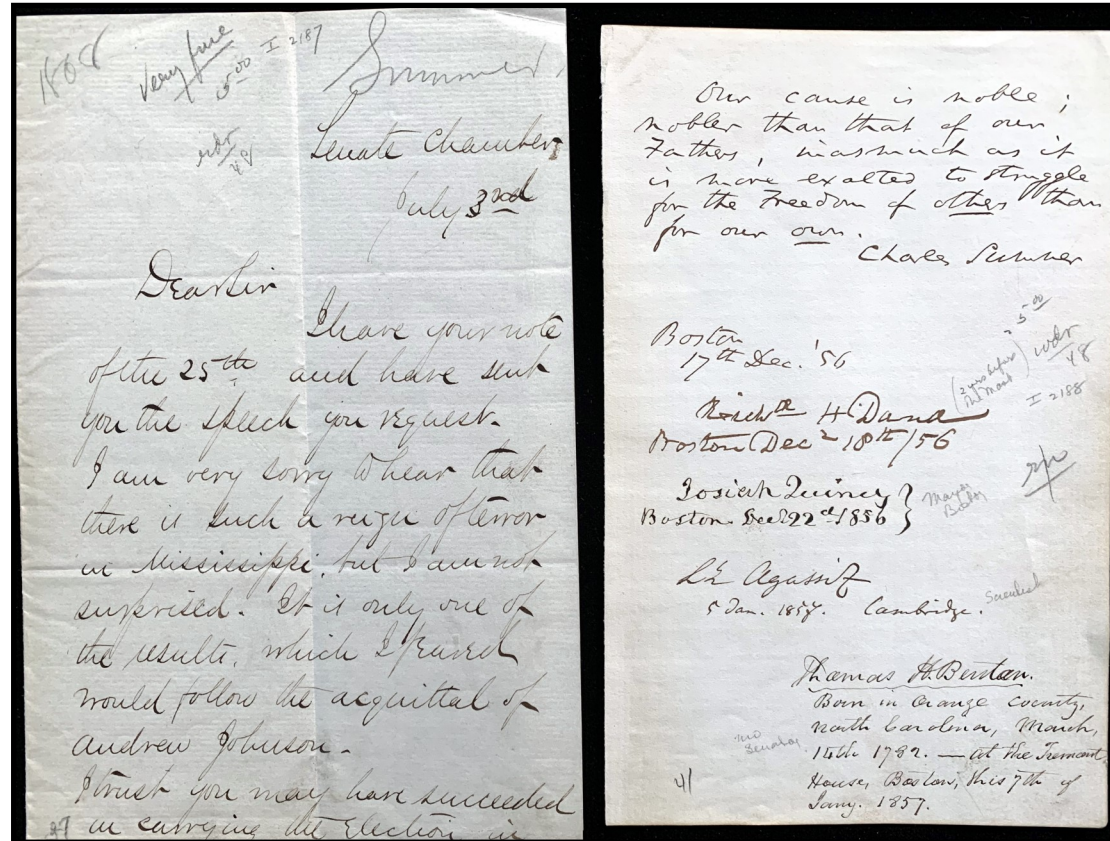 1868
Very fine
I 2187
5 00
wdr
48
Sumner
Senate Chamber
July 3rd
Dear Sir
I have your note
of the 25th and have sent
you the speech you request.
I am very sorry to hear that
there is such a reign of terror
in Mississippi, but I am not
surprised. It is only one of
the results, which I feared
would follow the acquittal of
Andrew Johnson.
I trust you may have succeeded
in carrying the Election in
Our cause is noble;
nobler than that of our
Fathers, inasmuch as it
is more exalted to struggle
for the Freedom of others than
for our own.
Charles Sumner
Boston
17th Dec. '56
25 00
(2 yrs before
wdr
48
I 2188
Richd H Dana
Boston Dec 18th/56
Josiah Quincy
Boston. Dec 22d 1856
Mayor
Boston
Ls Agassiz
5 Jan. 1857. Cambridge.
Scientist
Thomas H. Benton.
Born in Orange County,
North Carolina, March,
14th 1782. — at the Tremont
House, Boston, this 7th of
Jany. 1857.
Mo
Senator
41